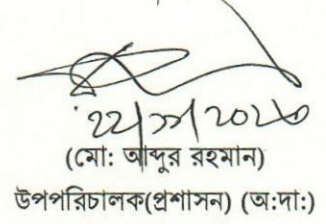 ২২/১১/২০২৩
(মো: আব্দুর রহমান)
উপপরিচালক(প্রশাসন) (অ:দা:)